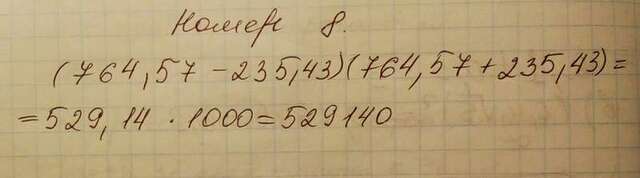 Номер 8.
(764,57 - 235,43)(764,57 + 235,43) =
= 529,14 · 1000 = 529140